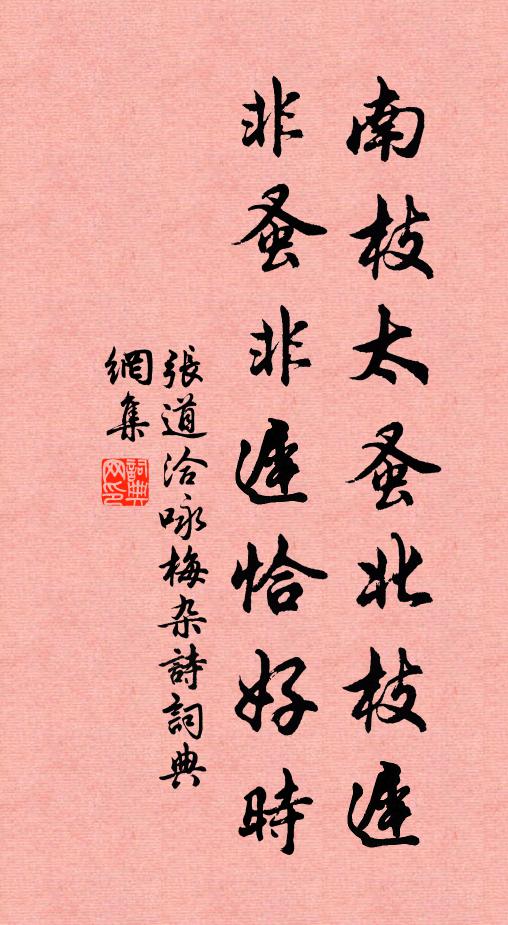 南枝太蚤北枝遲
非蚤非遲恰好時
張道洽咏梅杂詩詞典
網集
詞典网印